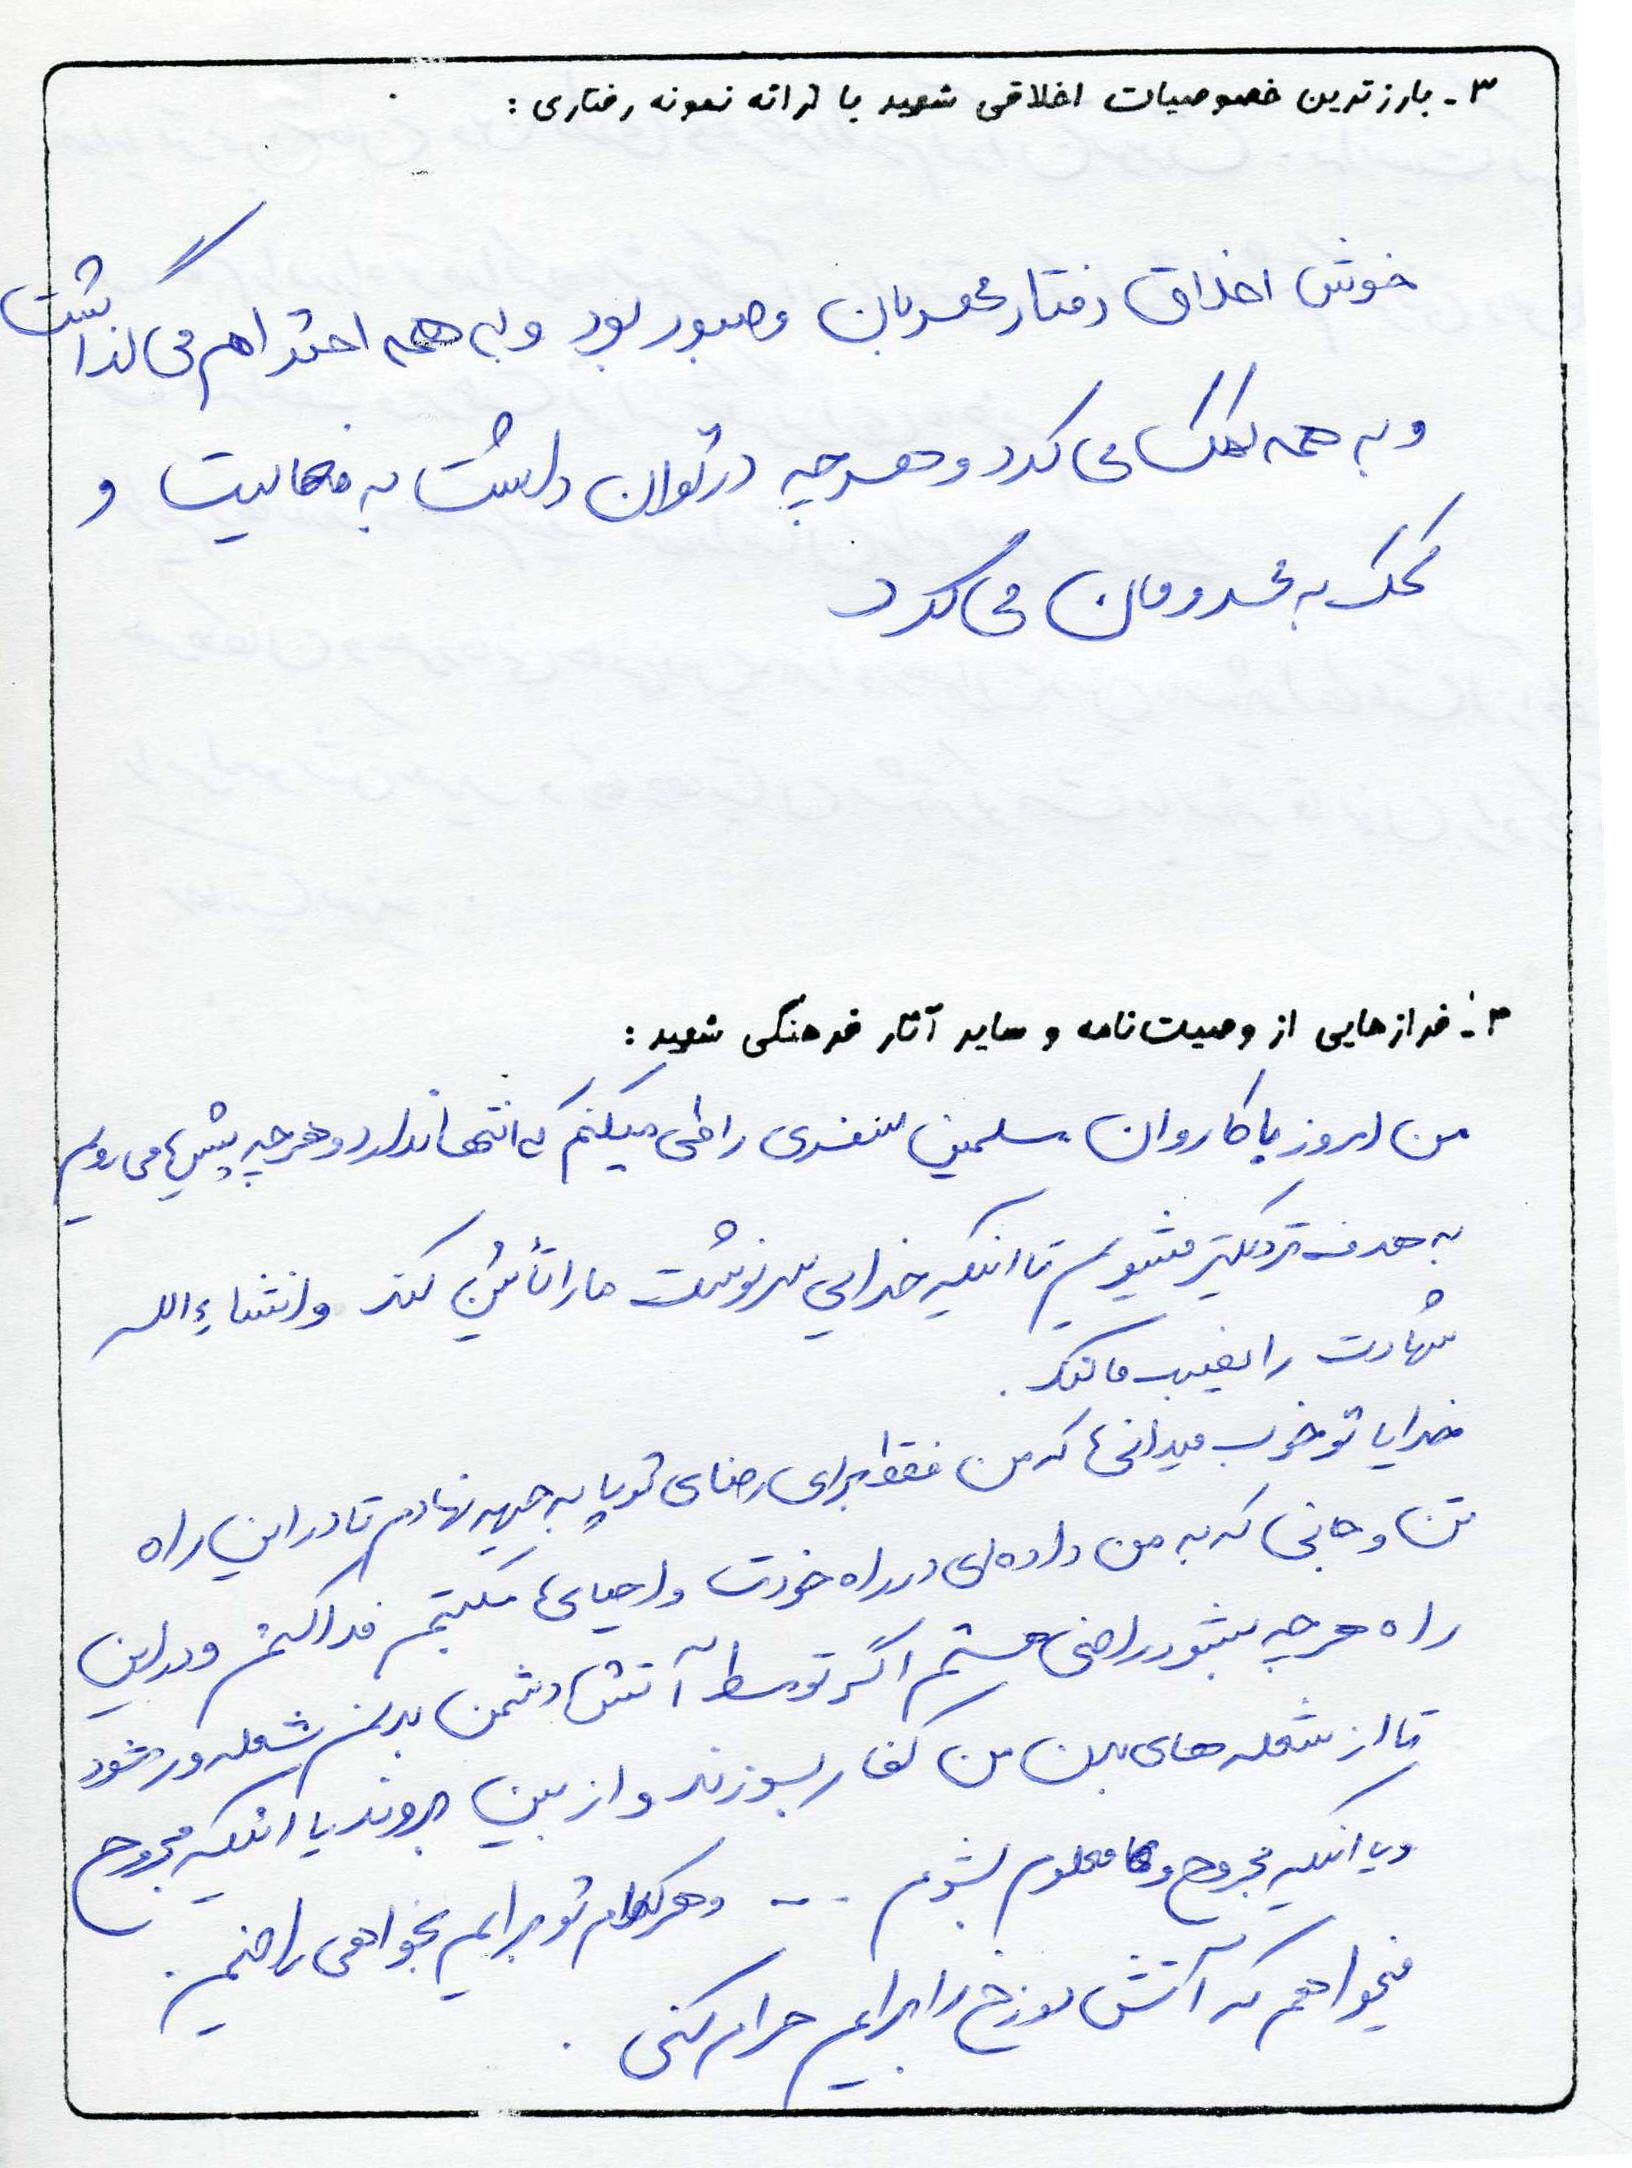 ۳ـ بارزترین خصوصیات اخلاقی شهید با ارائه نمونه رفتاری :
خوش اخلاق رفتار مهربان و صبور بود و به همه احترام می گذاشت
و به همه کمک می کرد و هر چیه در توان داشت به فعالیت و
کمک به محرومان می کرد
۳ـ فرازهایی از وصیت‌نامه و سایر آثار فرهنگی شهید :
من امروز با کاروان مسلمین سفری را طی میکنم که انتها ندارد و هر چیه پیش می رویم
به هدف نزدیکتر میشویم تا اینکه خدایی سرنوشت ما را تأئین کند و انشاءالله
شهادت را نصیب ما کند .
خدایا تو خوب میدانی که من فقط برای رضای تو پا به جبهه نهادم تا در این راه
تن و جانی که به من داده‌ای در راه خودت و احیای مکتبم فدا کنم و در این
راه هر چیه بشود راضی هستم اگر توسط آتش دشمن بدنم شعله ور شود
تا از شعله های بدن من کفار بسوزند و از بین بروند یا اینکه مجروح
و یا اینکه مجروح و معلوم بشوم ... و هر کدام تو برایم بخواهی راضیم .
میخواهم که آتش دوزخ را برایم حرام کنی .